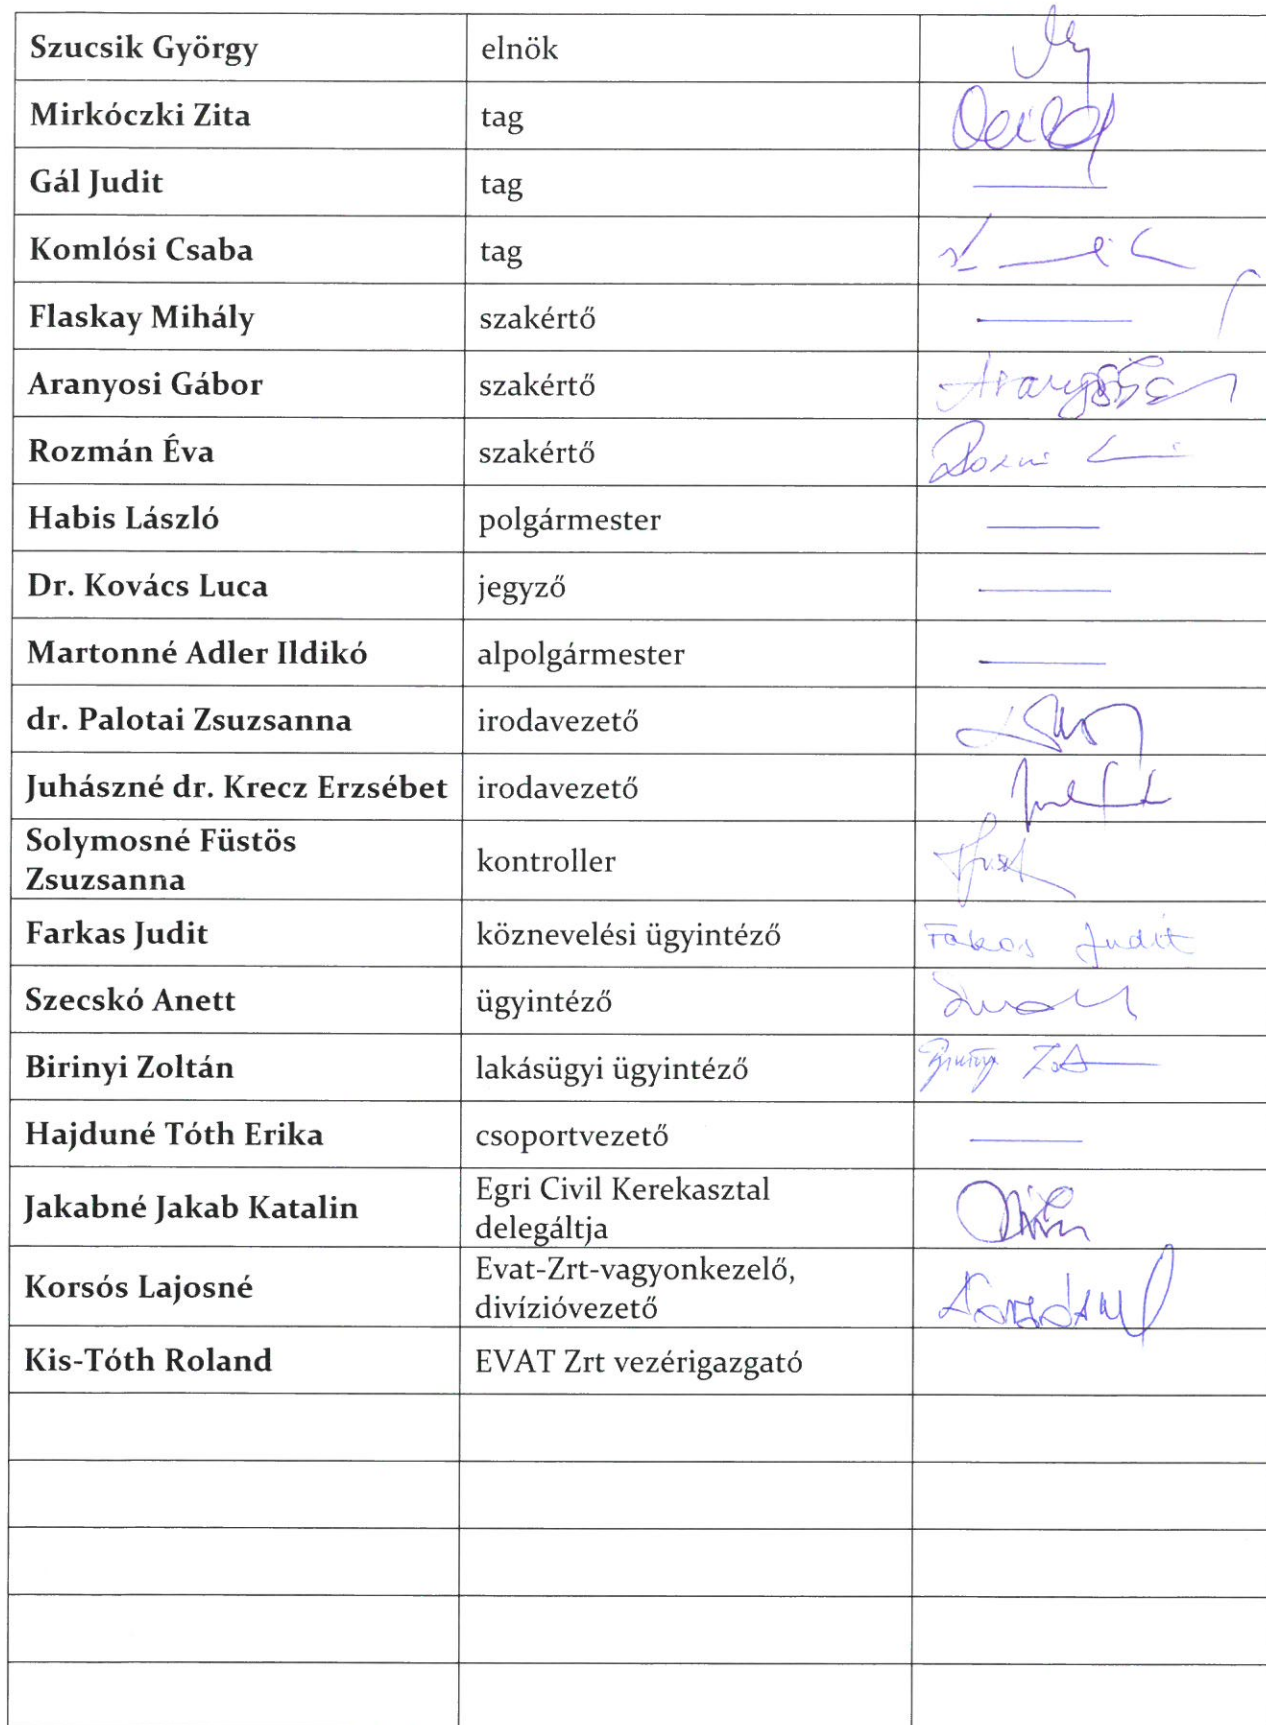 Szucsik György elnök
Mirkóczki Zita tag
Gál Judit tag
Komlósi Csaba tag
Flaskay Mihály szakértő
Aranyosi Gábor szakértő
Rozmán Éva szakértő
Habis László polgármester
Dr. Kovács Luca jegyző
Martonné Adler Ildikó alpolgármester
dr. Palotai Zsuzsanna irodavezető
Juhászné dr. Krecz Erzsébet irodavezető
Solymosné Füstös
Zsuzsanna kontroller
Farkas Judit köznevelési ügyintéző Farkas Judit
Szecskó Anett ügyintéző
Birinyi Zoltán lakásügyi ügyintéző
Hajduné Tóth Erika csoportvezető
Jakabné Jakab Katalin Egri Civil Kerekasztal
delegáltja
Korsós Lajosné Evat-Zrt-vagyonkezelő,
divízióvezető
Kis-Tóth Roland EVAT Zrt vezérigazgató